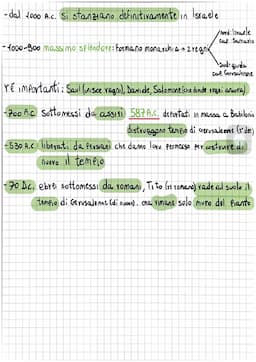 -dal 1000 A.C. si stanziano definitivamente in Israele
nord: Israele
cap. Samaria
-1000-900 massimo splendore: formano monarchia → 2 regni
Sud: giuda
cap. Gerusalemme
RE importanti: Saul (unisce regno), Davide, Salomone
-700 A.C. Sottomessi da assiri 587 A.C. deportati in massa a Babilonia
distruggono tempio di Gerusalemme (1°)
-530 A.C. liberati da Persiani che danno loro permesso per costruire di
nuovo il tempio
-70 D.C. ebrei sottomessi da romani, Tito (rade al suolo il
tempio di Gerusalemme (di nuovo). ora rimane solo muro del pianto